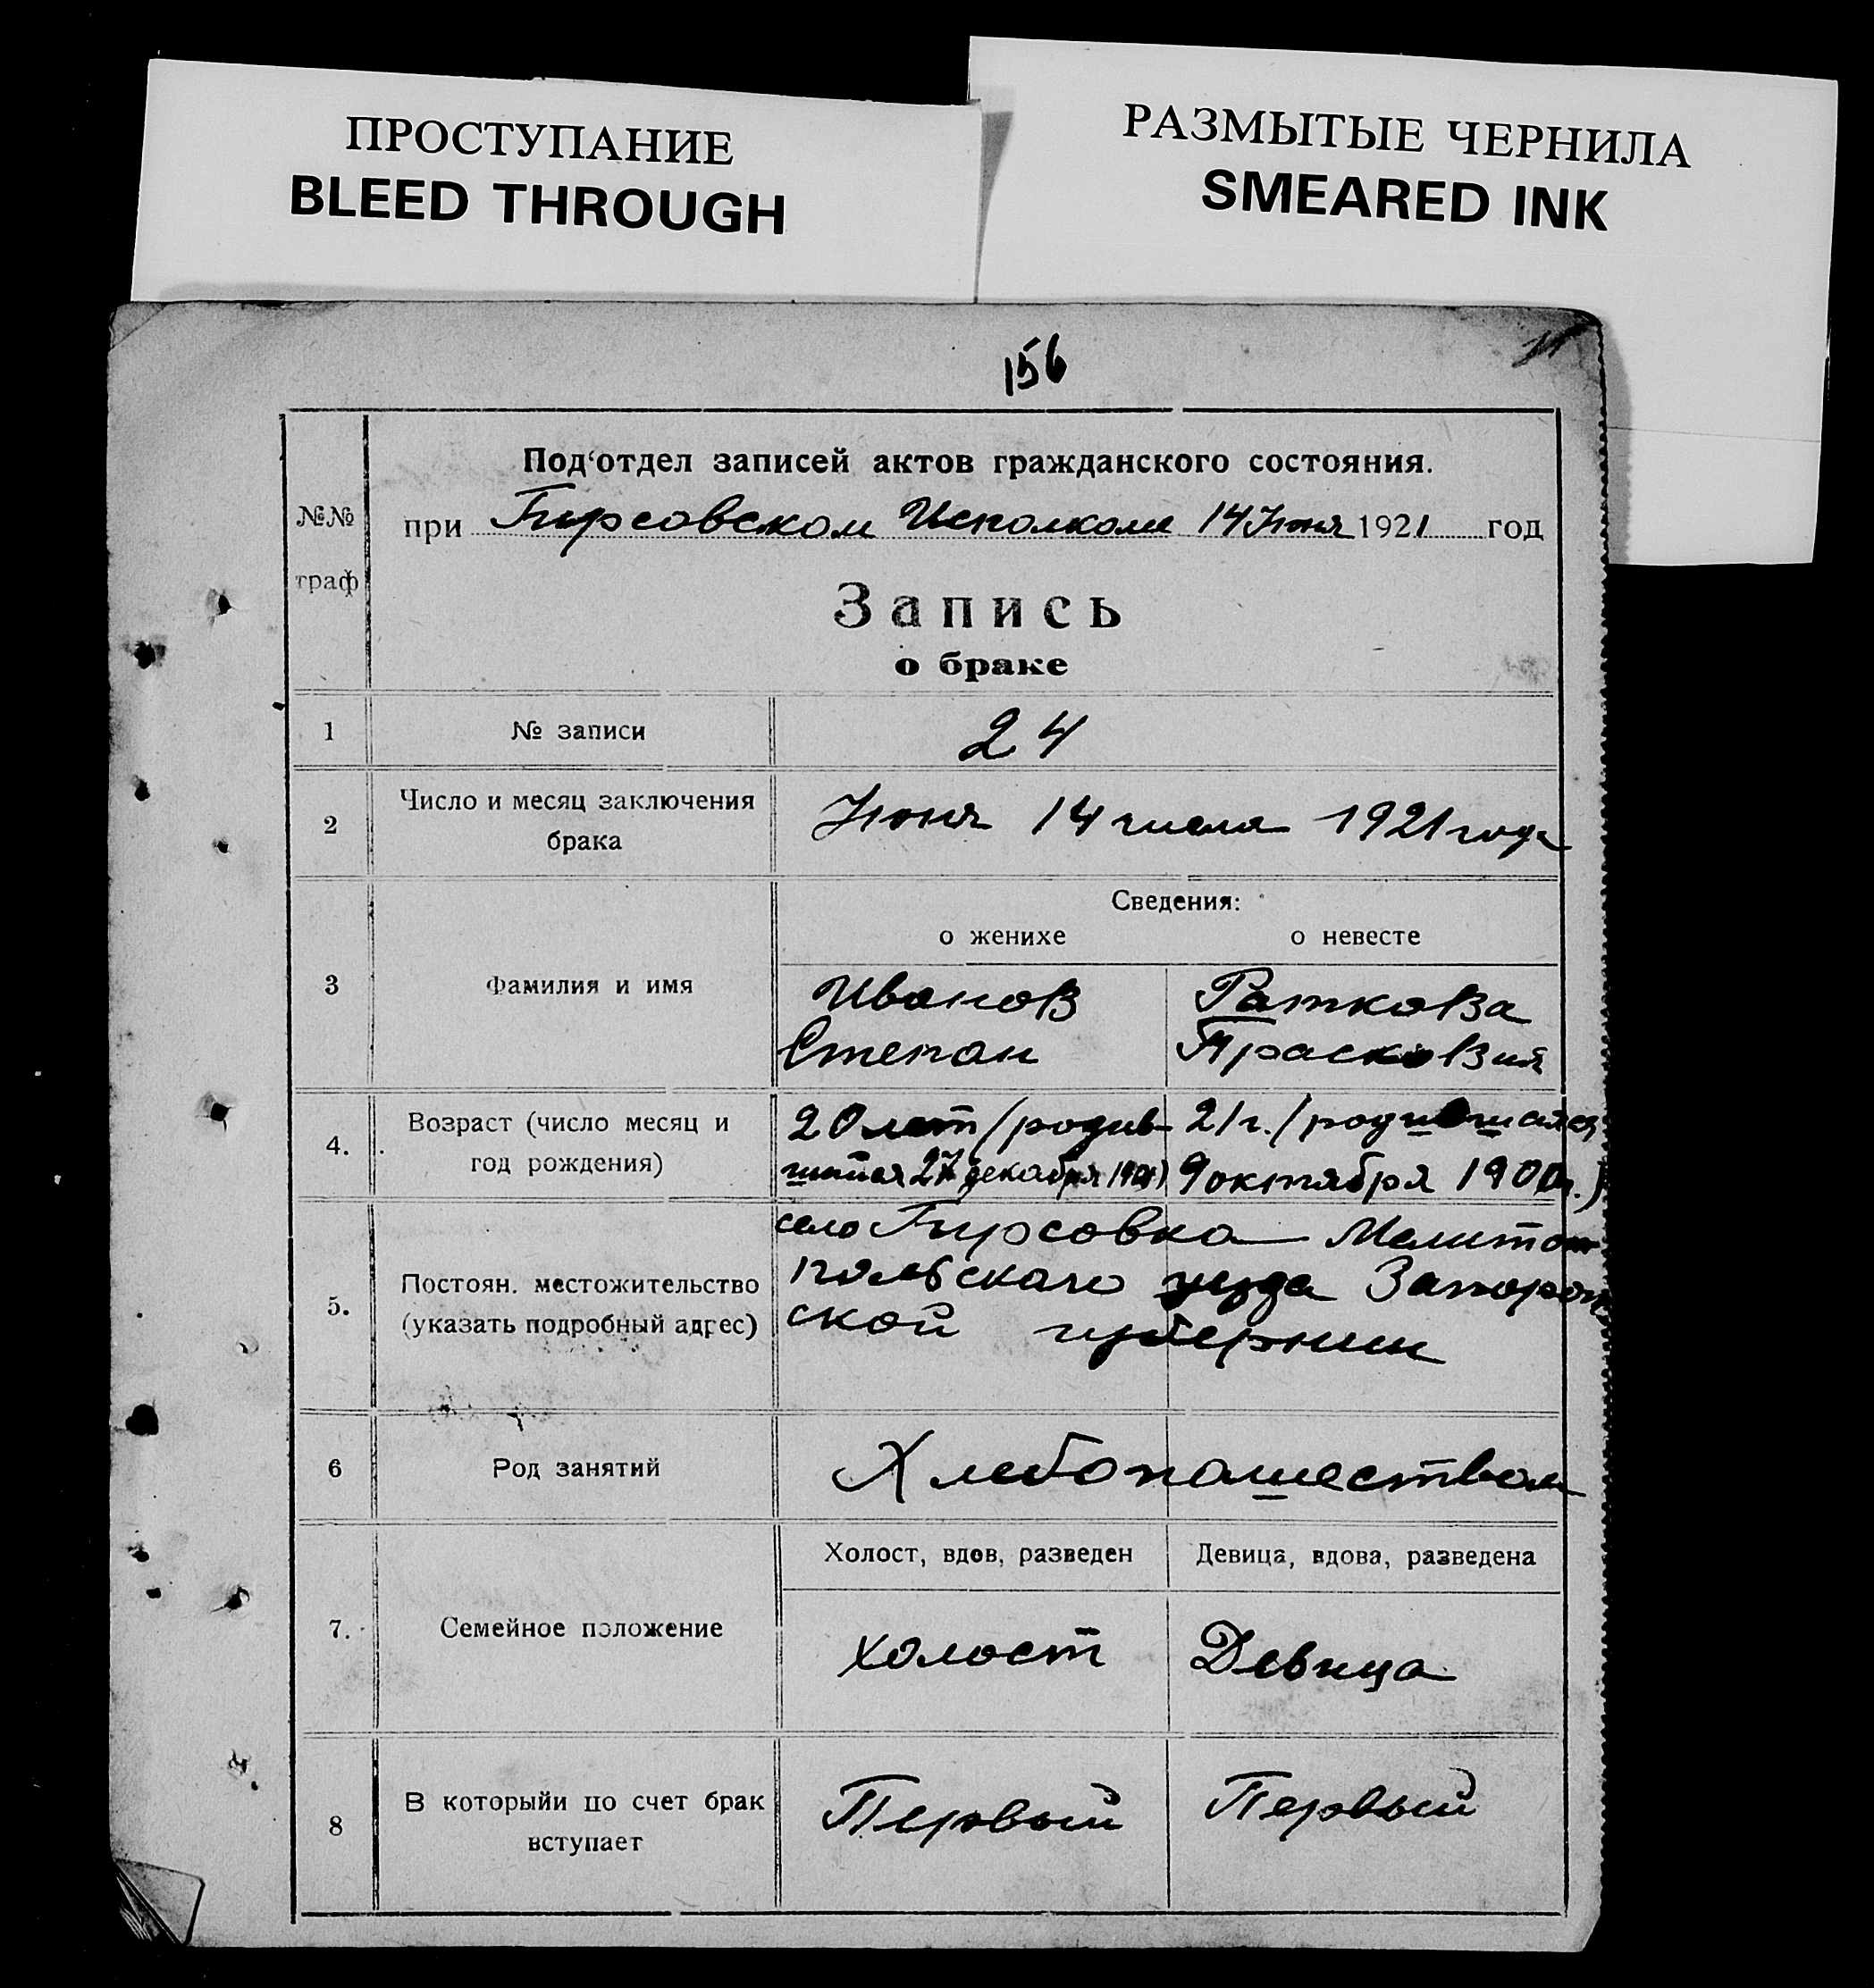 ПРОСТУПАНИЕ
BLEED THROUGH
РАЗМЫТЫЕ ЧЕРНИЛА
SMEARED INK
156
Под‘отдел записей актов гражданского состояния.
№№
граф
при Гирсовском Исполкоме 14 Июня 1921 год
Запись
о браке
1 № записи 24
2 Число и месяц заключения
брака
Июня 14 числа 1921 года
Сведения:
о женихе о невесте
3 Фамилия и имя
Иванов Раткова
Степан Прасковия
4. Возраст (число месяц и
год рождения)
20 лет (родив- 21 г. (родившаяся
шийся 27 декабря 9 октября 1900 г.)
5. Постоян. местожительство
(указать подробный адрес)
село Гирсовка Мелито
польскаго уезда Запорож
ской губернии
6 Род занятий Хлебопашеством
Холост, вдов, разведен Девица, вдова, разведена
7. Семейное положение
холост Девица
8 В которыйи по счет брак
вступает
Первый Первый